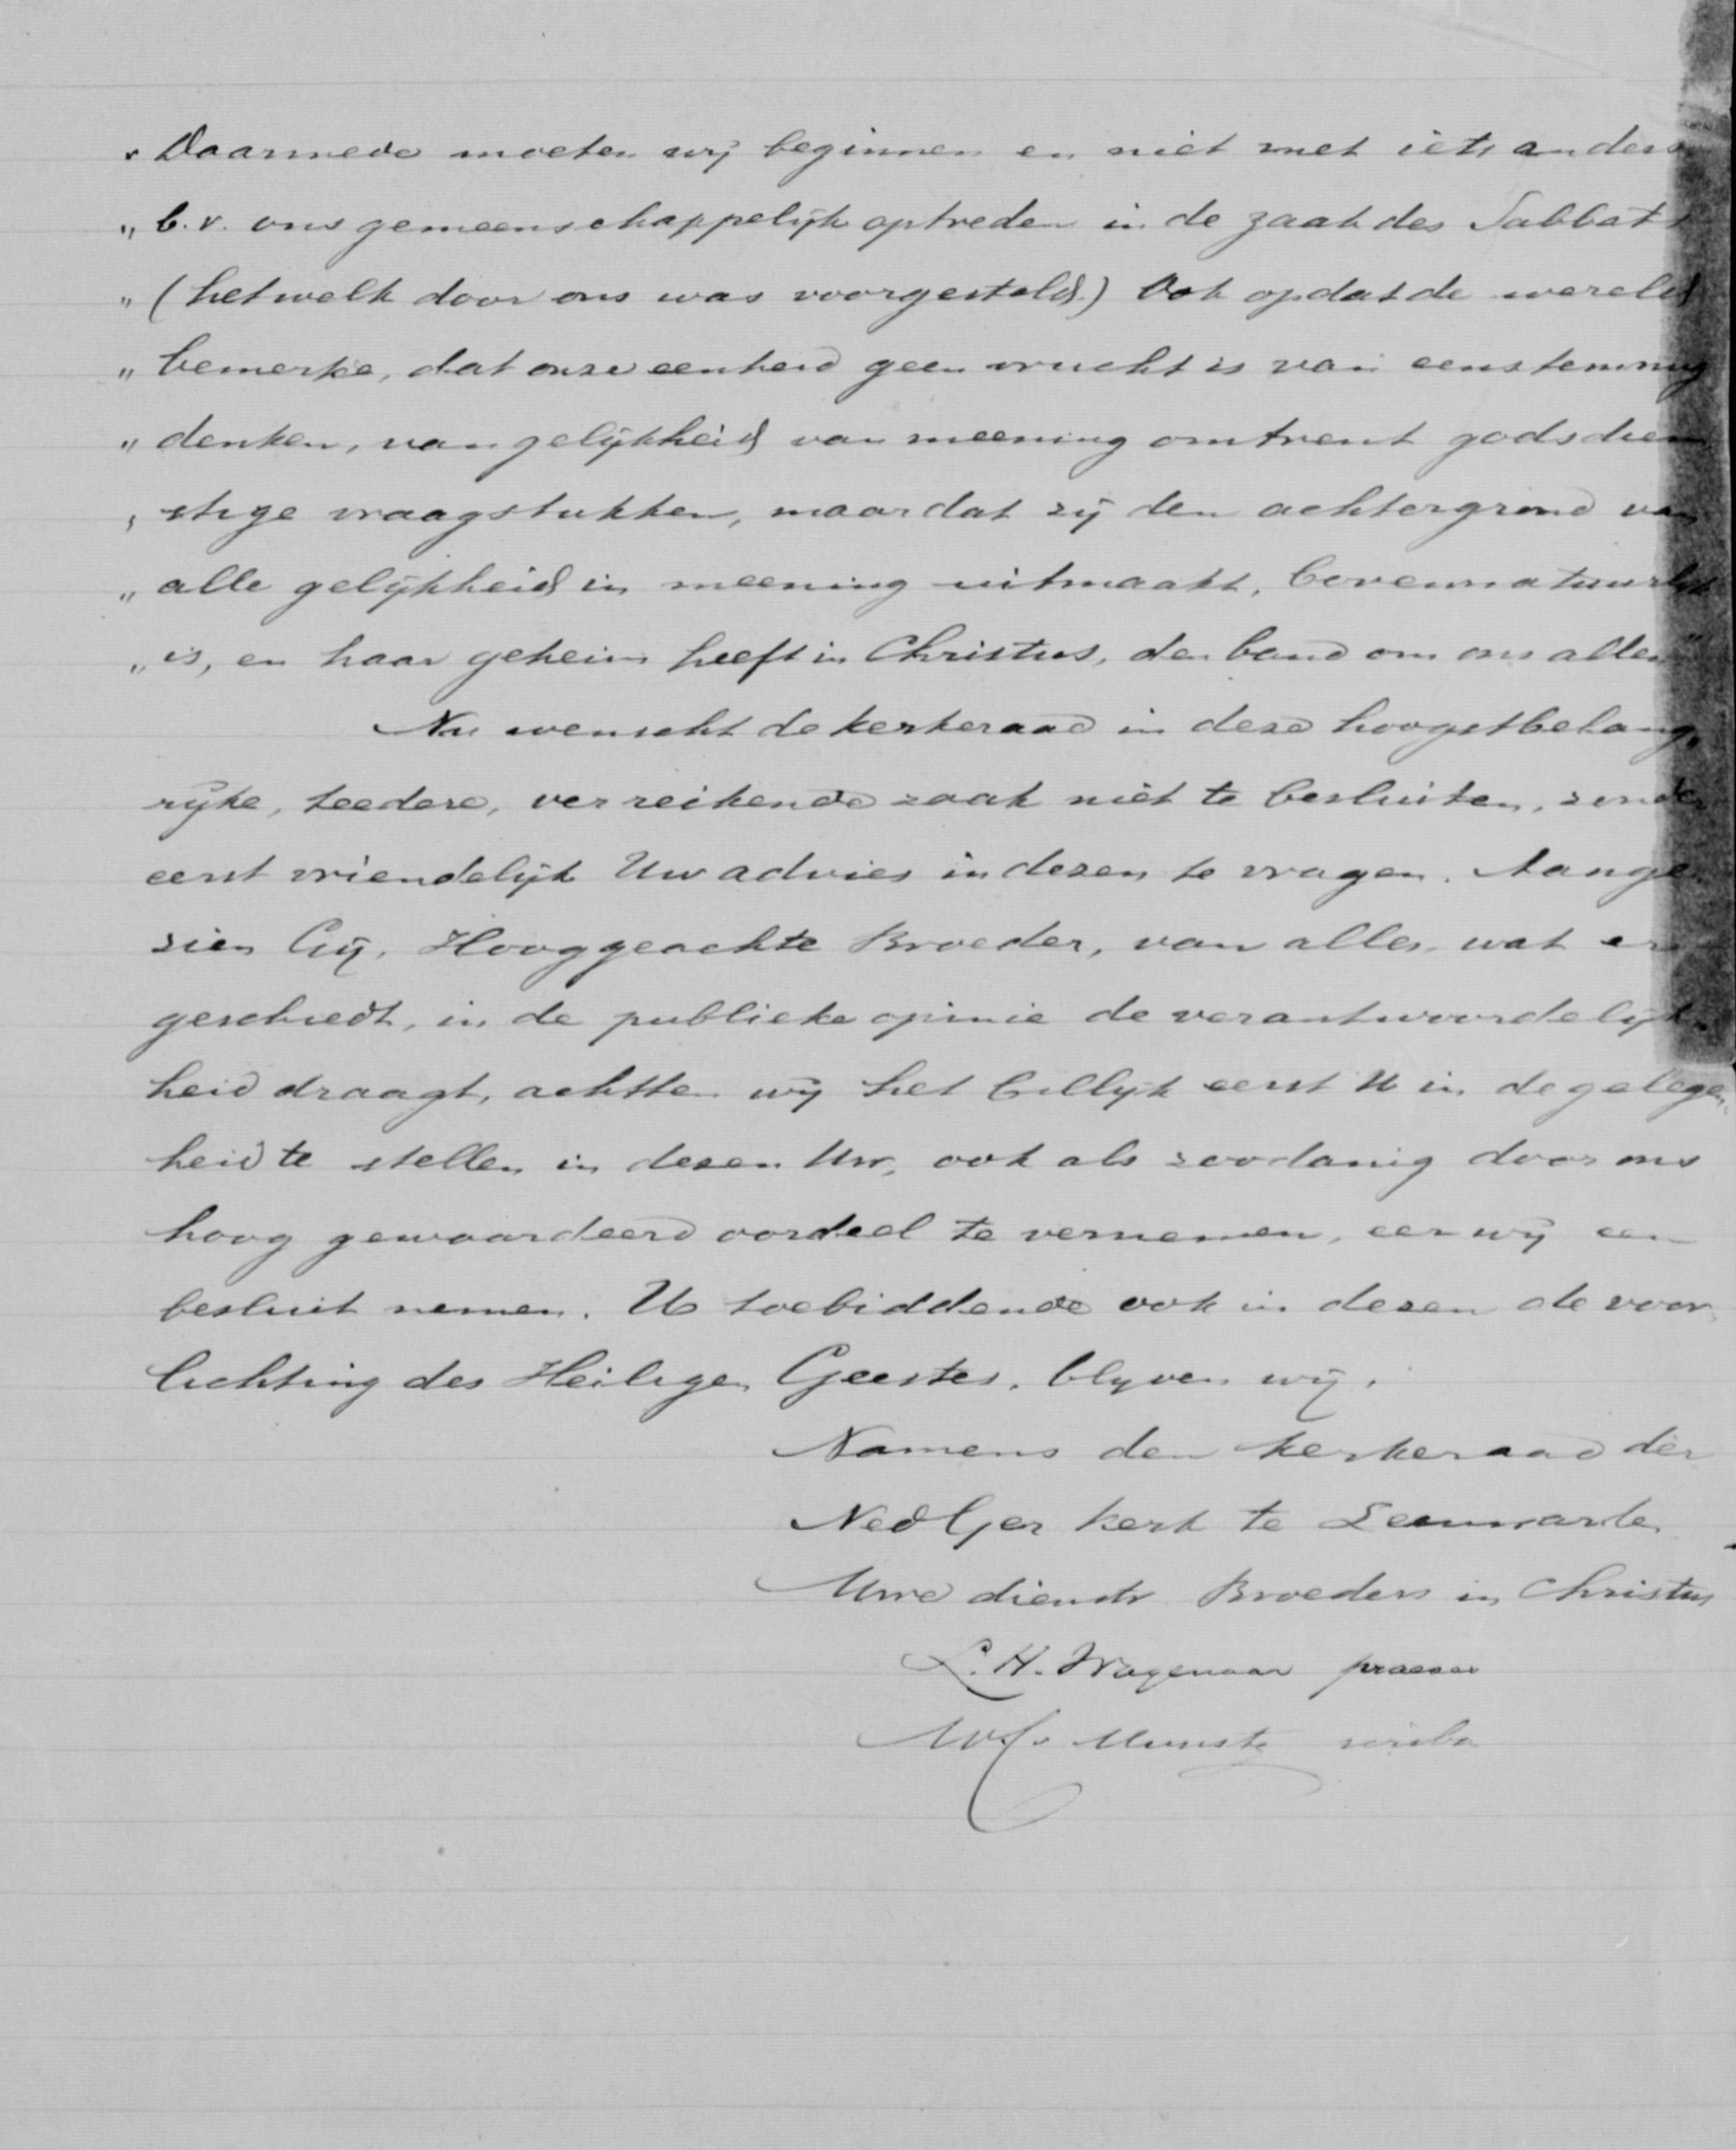 „ Daarmede moeten wij beginnen en niet met iets anders
„ b.v. ons gemeenschappelijk optreden in de zaak des Sabbats
„ (hetwelk door ons was voorgesteld) Ook opdat de wereld
„ bemerke, dat onze eenheid geen vrucht is van eenstemmig
„ denken, van gelijkheid van meening omtrent godsdien
„ stige vraagstukken, maar dat zij den achtergrond van
„ alle gelijkheid in meening uitmaakt, bovennatuurlijk
„ is, en haar geheim heeft in Christus, den band om ons allen"
Nu wenscht de kerkeraad in deze hoogstbelang,
rijke, teedere, verreikende zaak niet te besluiten, zonder
eerst vriendelijk Uw advies in dezen te vragen. Aange
zien Gij, Hooggeachte Broeder, van alles, wat er
geschiedt, in de publieke opinie de verantwoordelijk
heid draagt, achtten wij het billijk eerst U in de gelegen,
heid te stellen in dezen Uw, ook als zoodanig door ons
hoog gewaardeerd oordeel te vernemen, eer wij een
besluit nemen. U toebiddende ook in dezen de voor,
lichting des Heiligen Geestes, blijven wij,
Namens den kerkeraad der
Ned Ger kerk te Leeuwarden
Uwe dienstv Broeders in Christus
L. H. Wagenaar praeses
scriba